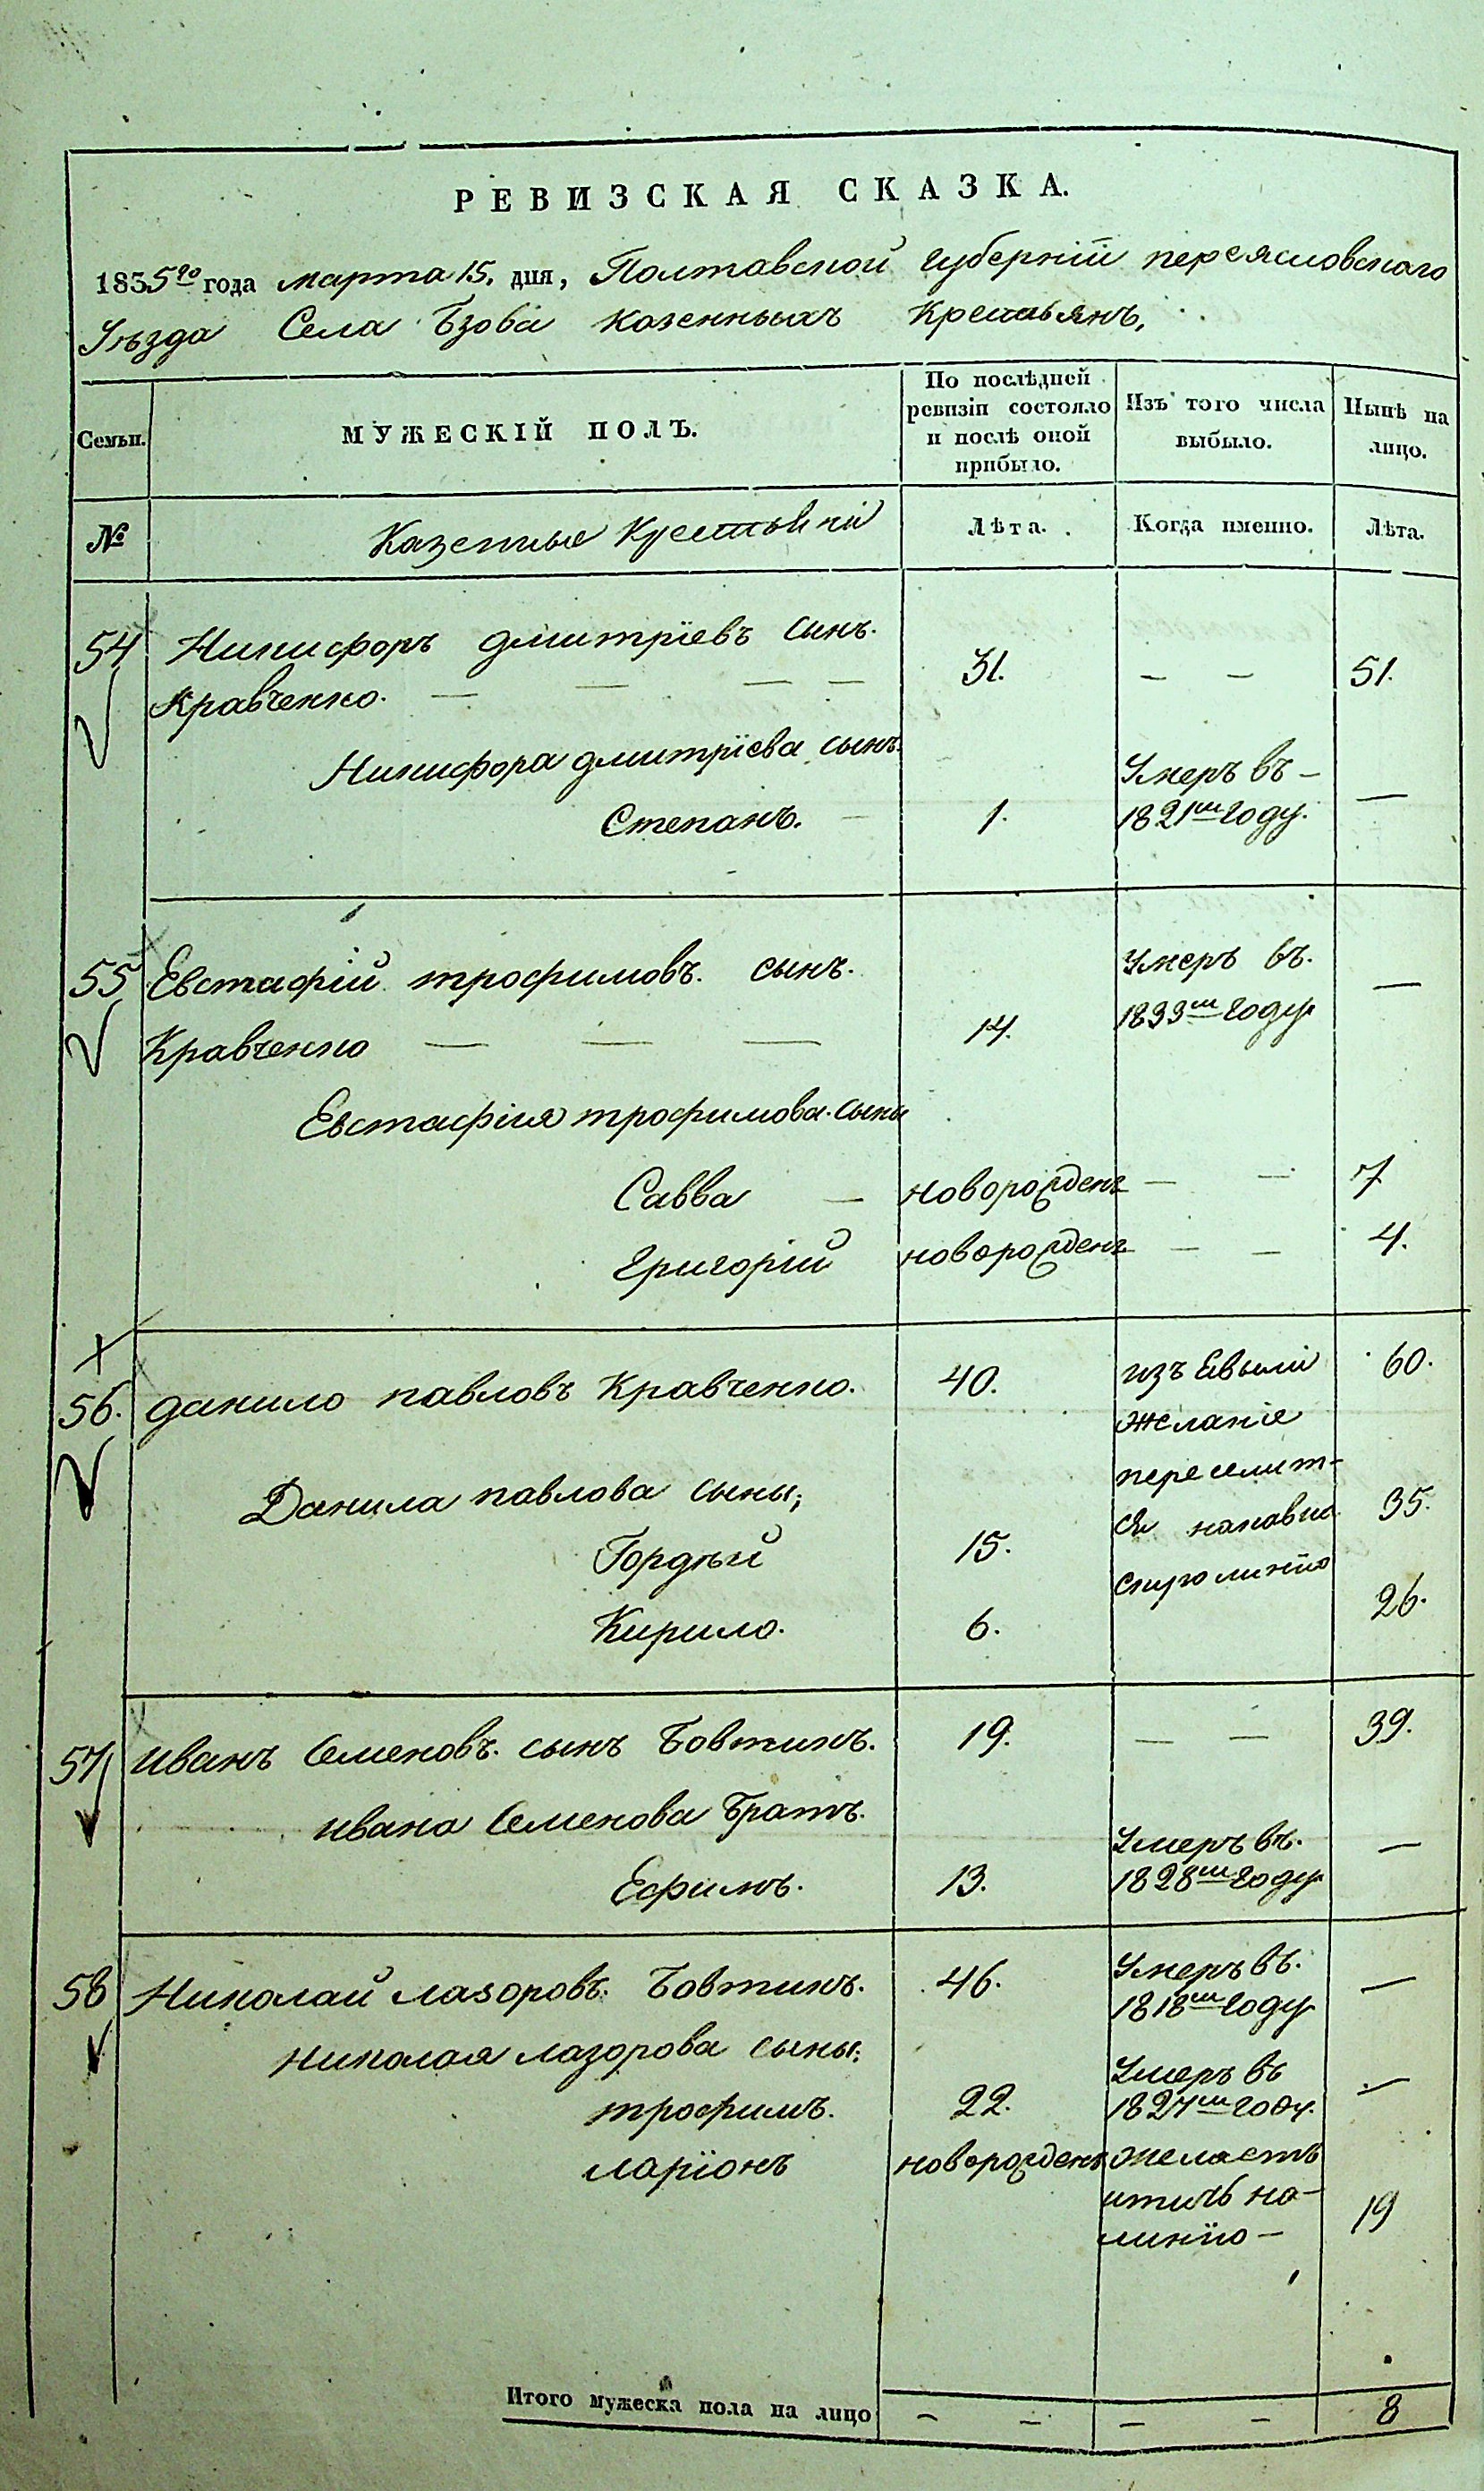 РЕВИЗСКАЯ СКАЗКА.
1835го года марта 15. дня, Полтавской Губерніи переясловскаго
Уѣзда Села Бзова казенныхъ Крестьянъ.
Семьи. МУЖЕСКІЙ ПОЛЪ. По послѣдней ревизіи состояло и послѣ оной прибыло. Изъ того числа выбыло. Нынѣ на лицо.
№ Казенные Крестьяни Лѣта. Когда именно. Лѣта.
54 Никифоръ дмитріевъ сынъ.
Кравченко. — — — — 31. — — 51.
Никифора дмитріева сынъ. Умеръ въ —
Степанъ. — 1. 1821м году. —
55 Евстафій трофимовъ. сынъ. Умеръ въ. —
Кравченко — — — 14. 1833м году
Евстафія трофимова. сыны
Савва — новорожденъ — — 7
Григорій новорожденъ — — 4.
56. данило павловъ Кравченко. 40. изъ 60.
желаніе
Данила павлова сыны; переселит-
ся накавка 35.
Гордѣй 15. скую линію
Кирило. 6. 26.
57 иванъ Семеновъ. сынъ Бовтинъ. 19. — — 39.
ивана Семенова Братъ. Умеръ въ. —
Ефимъ. 13. 1828м году
58 Николай лазоровъ. Бовтинъ. 46. Умеръ въ. —
1818м году
николая лазорова сыны: Умеръ въ
трофимъ. 22. 1827м году. —
ларіонъ новорожденъ желаетъ
итить на- 19
линію —
Итого мужеска пола на лицо — — — — 8